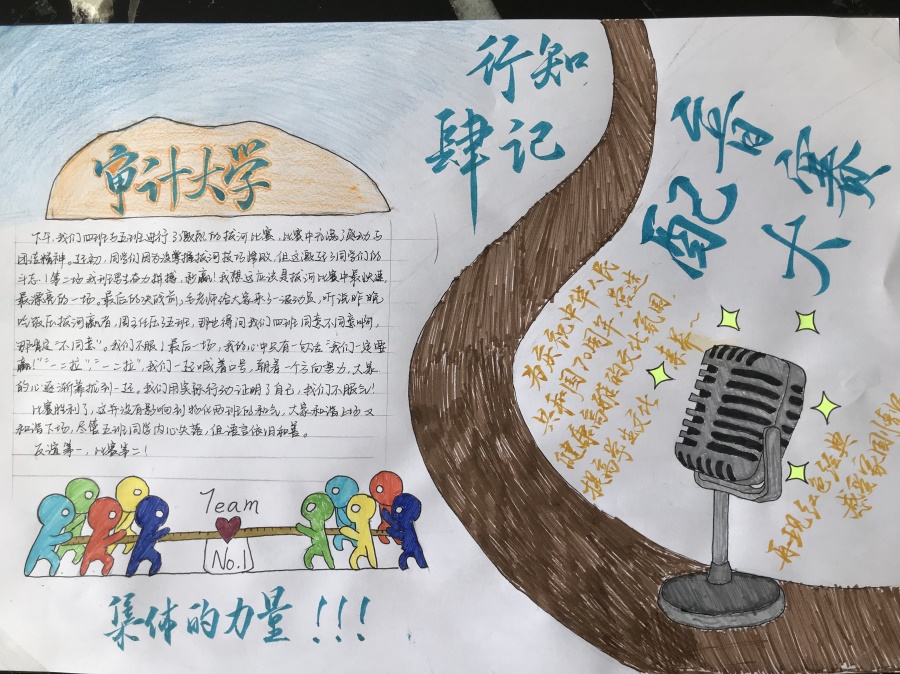 行知
肆记
审计大学
下午,我们四班与五班进行了激烈的拔河比赛,比赛中充满了激动与
团结精神。起初,同学们因为没掌握拔河技巧惨败,但这激起了同学们的
斗志!第二场我们班奋力拼搏,逆赢!我想这应该是拔河比赛中最快速
最漂亮的一场。最后的决战前,毛老师给大家来了一波动员,听说昨晚
拔河赢者,周主任压五班,那也得问我们四班同意不同意啊,
那肯定“不同意”。我们不服!最后一场,我的心中只有一句话“我们一定要
赢!”“一二拉”,“一二拉”,我们一起喊着口号,朝着一个方向努力,大家
的心逐渐靠拢到一起。我们用实际行动证明了自己,我们不服气!
比赛胜利了,这并没有影响到物化两班的和气,大家和谐上场又
和谐下场,尽管五班同学内心失落,但语言依旧和善。
友谊第一,比赛第二!
Team
No.1
集体的力量!!!
配音
大赛
为庆祝中华人民
共和国70周年,营造
健康高雅的文化氛围,
提高学生文化素养~
再现红色经典
热爱家国情